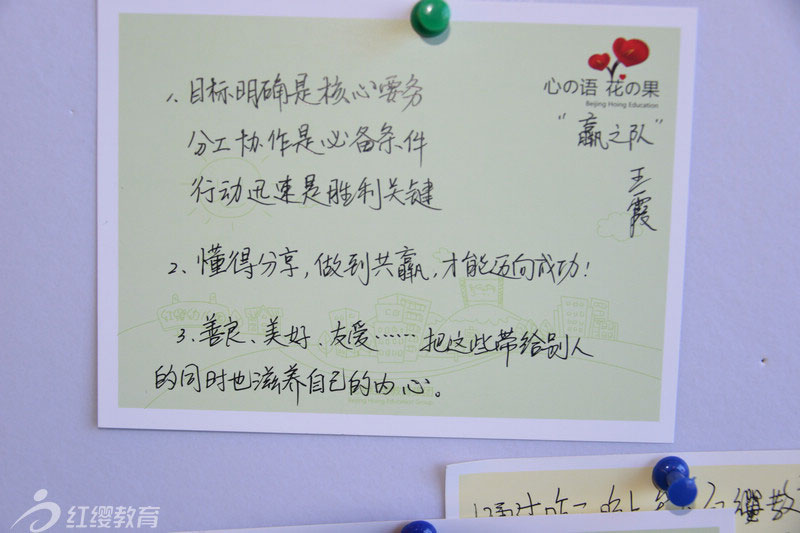 心の语 花の果
Beijing Hoing Education
"赢之队"
王霞
1、目标明确是核心要务
分工协作是必备条件
行动迅速是胜利关键
2、懂得分享，做到共赢，才能迈向成功！
3、善良、美好、友爱……把这些带给别人
的同时也滋养自己的内心。
红缨教育